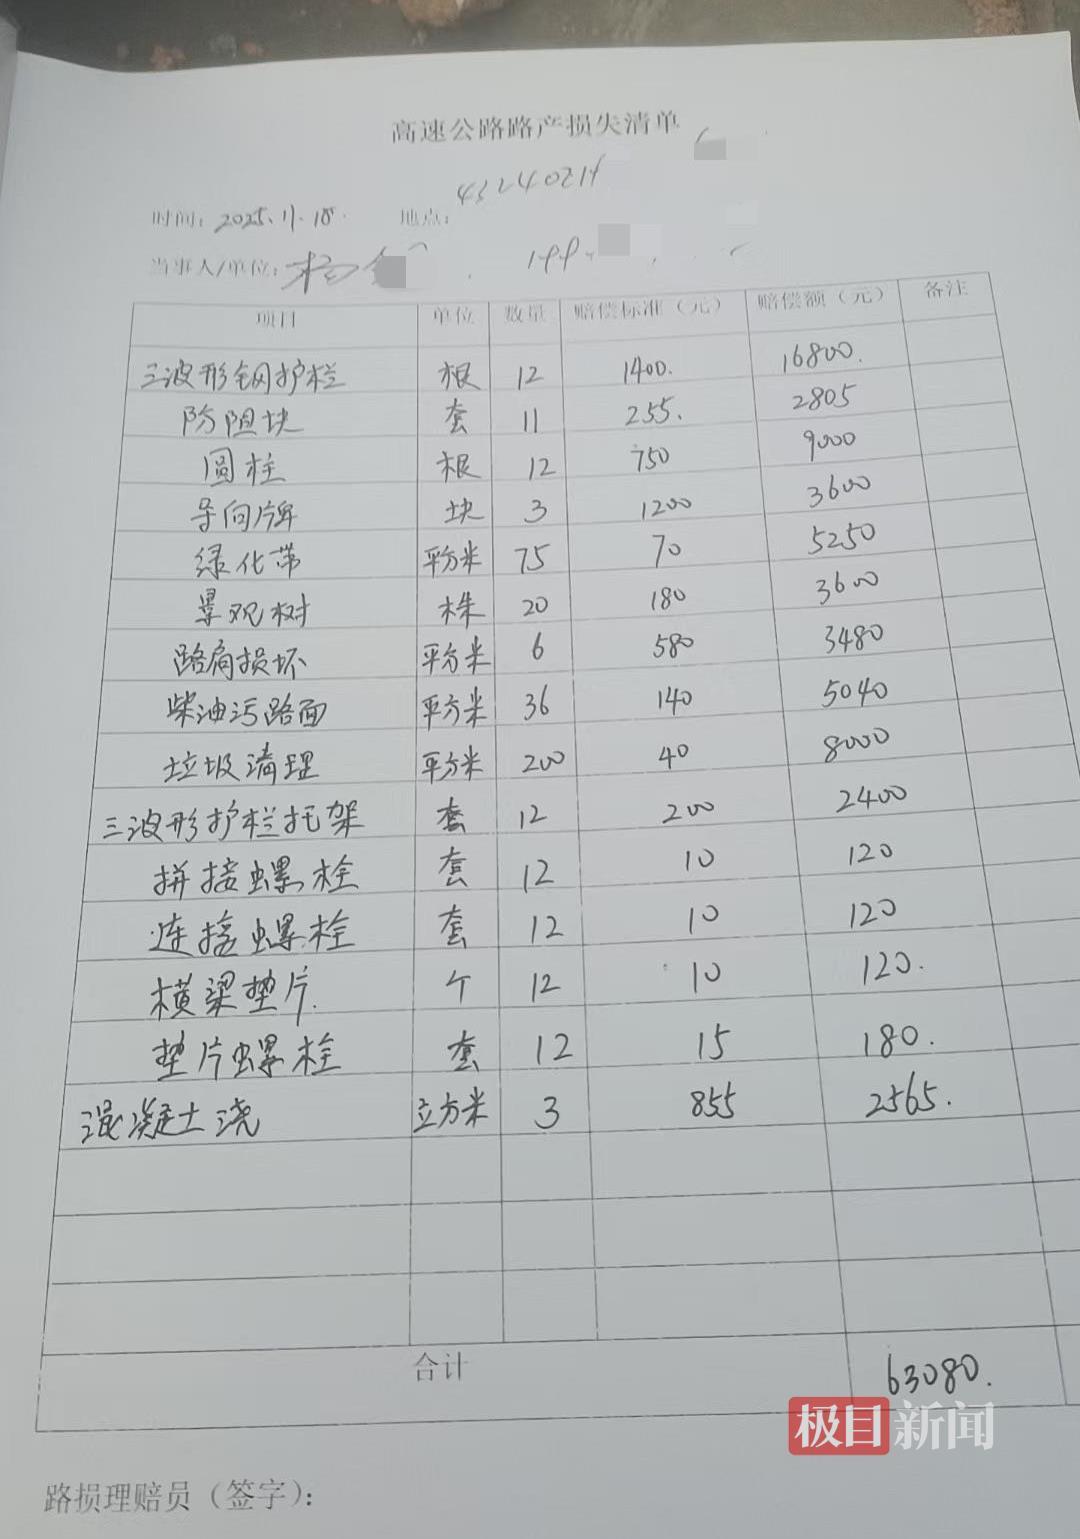 高速公路路产损失清单
时间：2025.11.18. 地点：4324021f
当事人/单位：杨
项目 单位 数量 赔偿标准（元） 赔偿额（元） 备注
三波形钢护栏 根 12 1400. 16800.
防阻块 套 11 255. 2805
圆柱 根 12 750 9000
导向牌 块 3 1200 3600
绿化带 平方米 75 70 5250
景观树 株 20 180 3600
路肩损坏 平方米 6 580 3480
柴油污路面 平方米 36 140 5040
垃圾清理 平方米 200 40 8000
三波形护栏托架 套 12 200 2400
拼接螺栓 套 12 10 120
连接螺栓 套 12 10 120
横梁垫片. 个 12 10 120.
垫片螺栓 套 12 15 180.
混凝土浇 立方米 3 855 2565.
合计 63080.
极目新闻
路损理赔员（签字）：